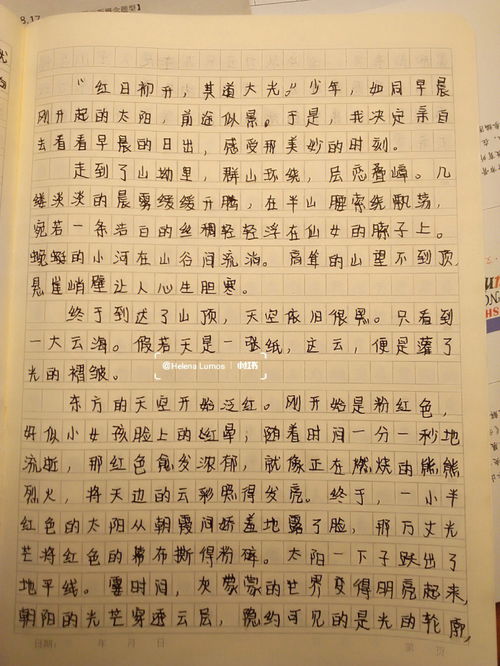 8.17
"红日初升，其道大光。"少年，如同早晨
刚升起的太阳，前途似景。于是，我决定亲自
去看看早晨的日出，感受那美妙的时刻。
走到了山坳里，群山环绕，层峦叠嶂。几
缕淡淡的晨雾缓缓升腾，在半山腰萦绕飘荡，
宛若一条洁白的丝绸轻轻浮在仙女的脖子上。
蜿蜒的小河在山谷间流淌。高耸的山望不到顶，
悬崖峭壁让人心生胆寒。
终于到达了山顶，天空依旧很黑。只看到
一大云海。假若天是一张纸，这云，便是蘸了
光的褶皱。
@Helena Lumos 小红书
东方的天空开始泛红。刚开始是粉红色，
好似小女孩脸上的红晕；随着时间一分一秒地
流逝，那红色愈发浓郁，就像正在燃烧的熊熊
烈火，将天边的云彩照得发亮。终于，一小半
红色的太阳从朝霞间娇羞地露了脸，那万丈光
芒将红色的幕布撕得粉碎。太阳一下子跃出了
地平线。霎时间，灰蒙蒙的世界变得明亮起来，
朝阳的光芒穿透云层，隐约可见的是光的轮廓，
日期： 年 月 日 第 页